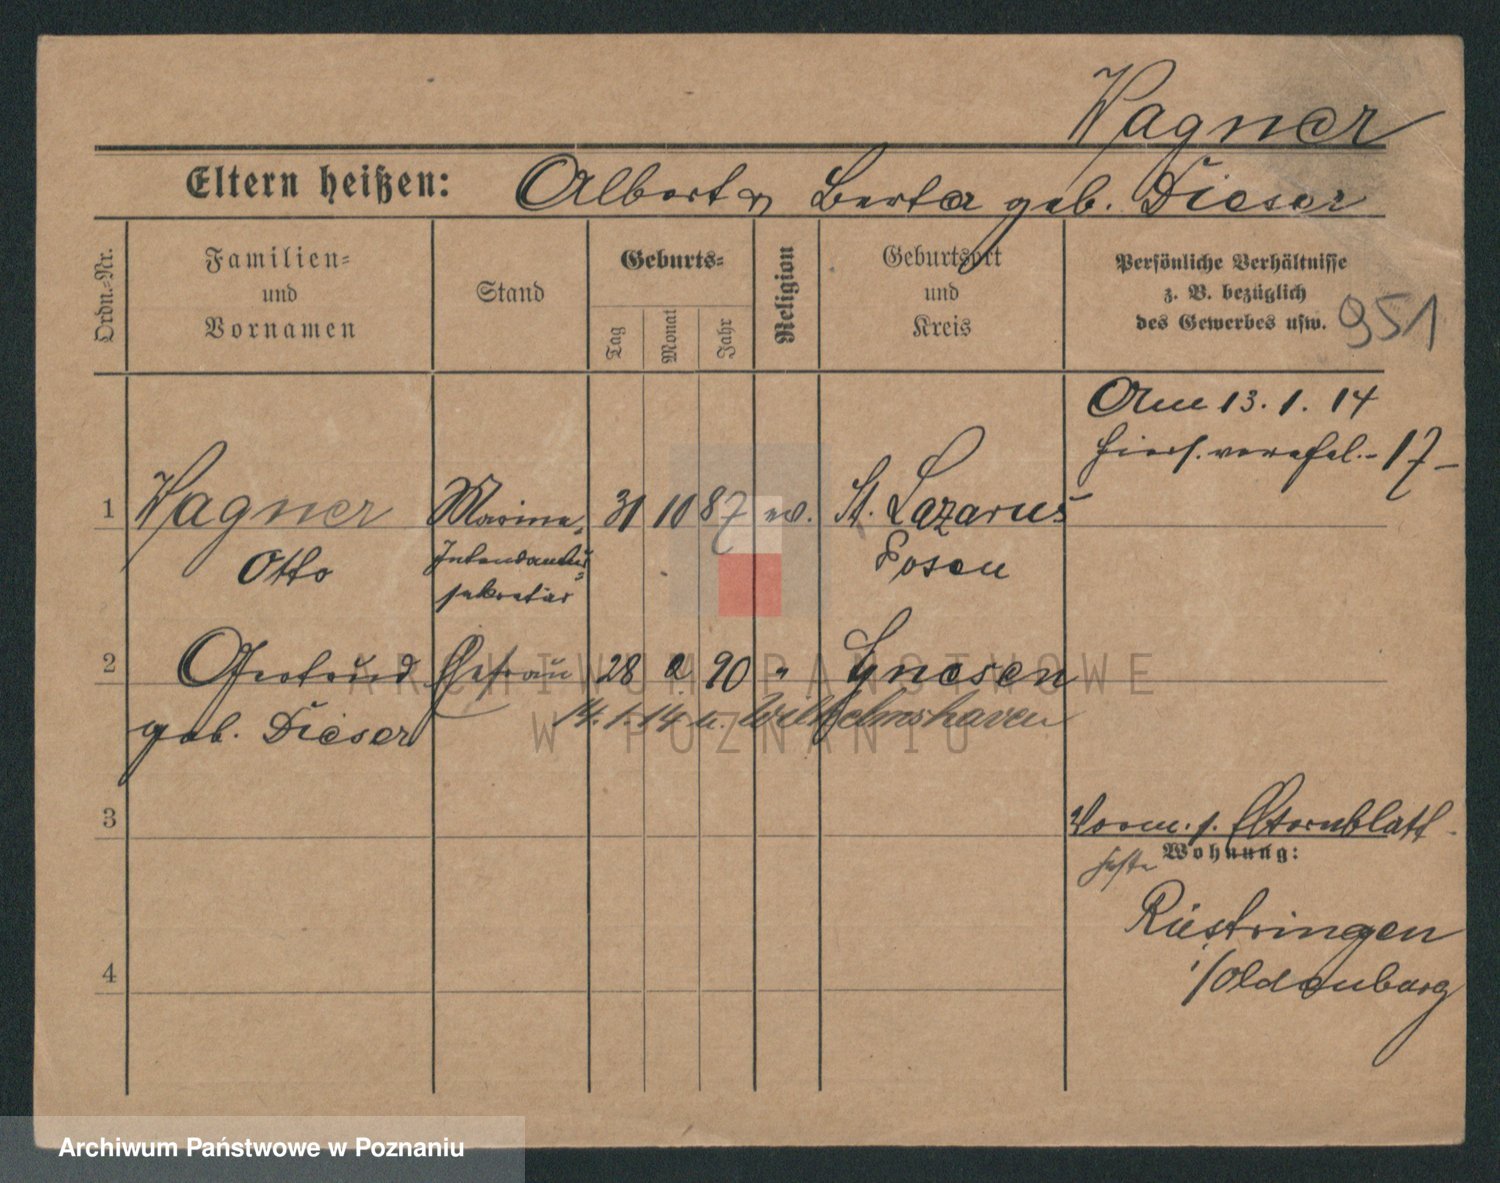 Wagner
Eltern heißen: Albert u Berta geb. Dieser
Ordn.-Nr.
Familien-
und
Vornamen
Stand
Geburts-
Tag
Monat
Jahr
Religion
Geburtsort
und
Kreis
Persönliche Verhältnisse
z. B. bezüglich
des Gewerbes usw.
951
Am 13. 1. 14
hiers. verehel. - 17 -
1 Wagner Marine- 31 10 87 ev. St. Lazarus
Otto Intendantur- Posen
sekretär
2 Gertrud Ehefrau 28 2 90 " Gnesen
geb. Dieser
14. 1. 14 n. Wilhelmshaven
3
Vorm. s. Elternblatt.
Wohnung:
Rüstringen
i/Oldenburg
4
ARCHIWUM PAŃSTWOWE
W POZNANIU
Archiwum Państwowe w Poznaniu